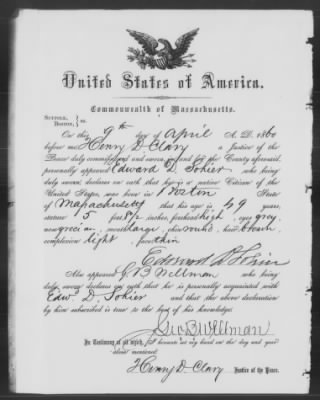 United States of America.
Commonwealth of Massachusetts.
SUFFOLK,
BOSTON, } ss.
On this 9th day of April A. D. 1860
before me Henry D Clary a Justice of the
Peace duly commissioned and sworn, in and for the County aforesaid,
personally appeared Edward D. Sohier who being
duly sworn, declares on oath that he is a native Citizen of the
United States, was born in Boston State
of Massachusetts that his age is 49 years,
stature 5 feet 8 1/2 inches, forehead high, eyes grey,
nose grecian, mouth large, chin round, hair brown,
complexion light, face thin
Edward D Sohier
Also appeared G B Wellman who being
duly sworn declares on oath that he is personally acquainted with
Edwd D. Sohier and that the above declaration
by him subscribed is true to the best of his knowledge.
Geo B Wellman
In Testimony of all which, I hereunto set my hand on the day and year
above mentioned.
Henry D- Clary Justice of the Peace.